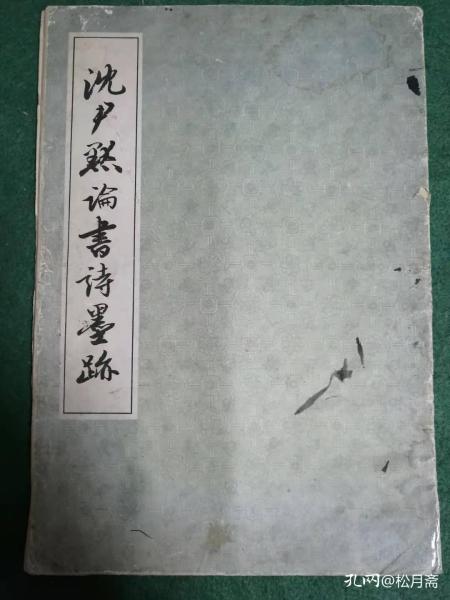 沈尹默論書詩墨跡
孔网@松月斋